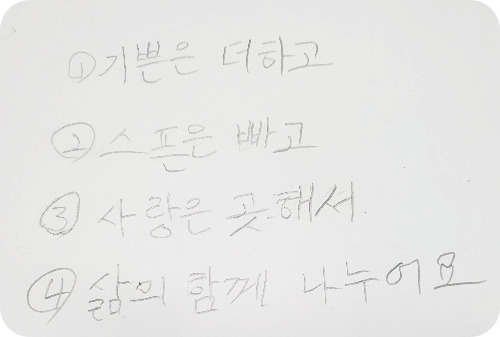 ① 기쁜은 더하고
② 스픈은 빠고
③ 사랑은 곳해서
④ 삶의 함께 나누어요